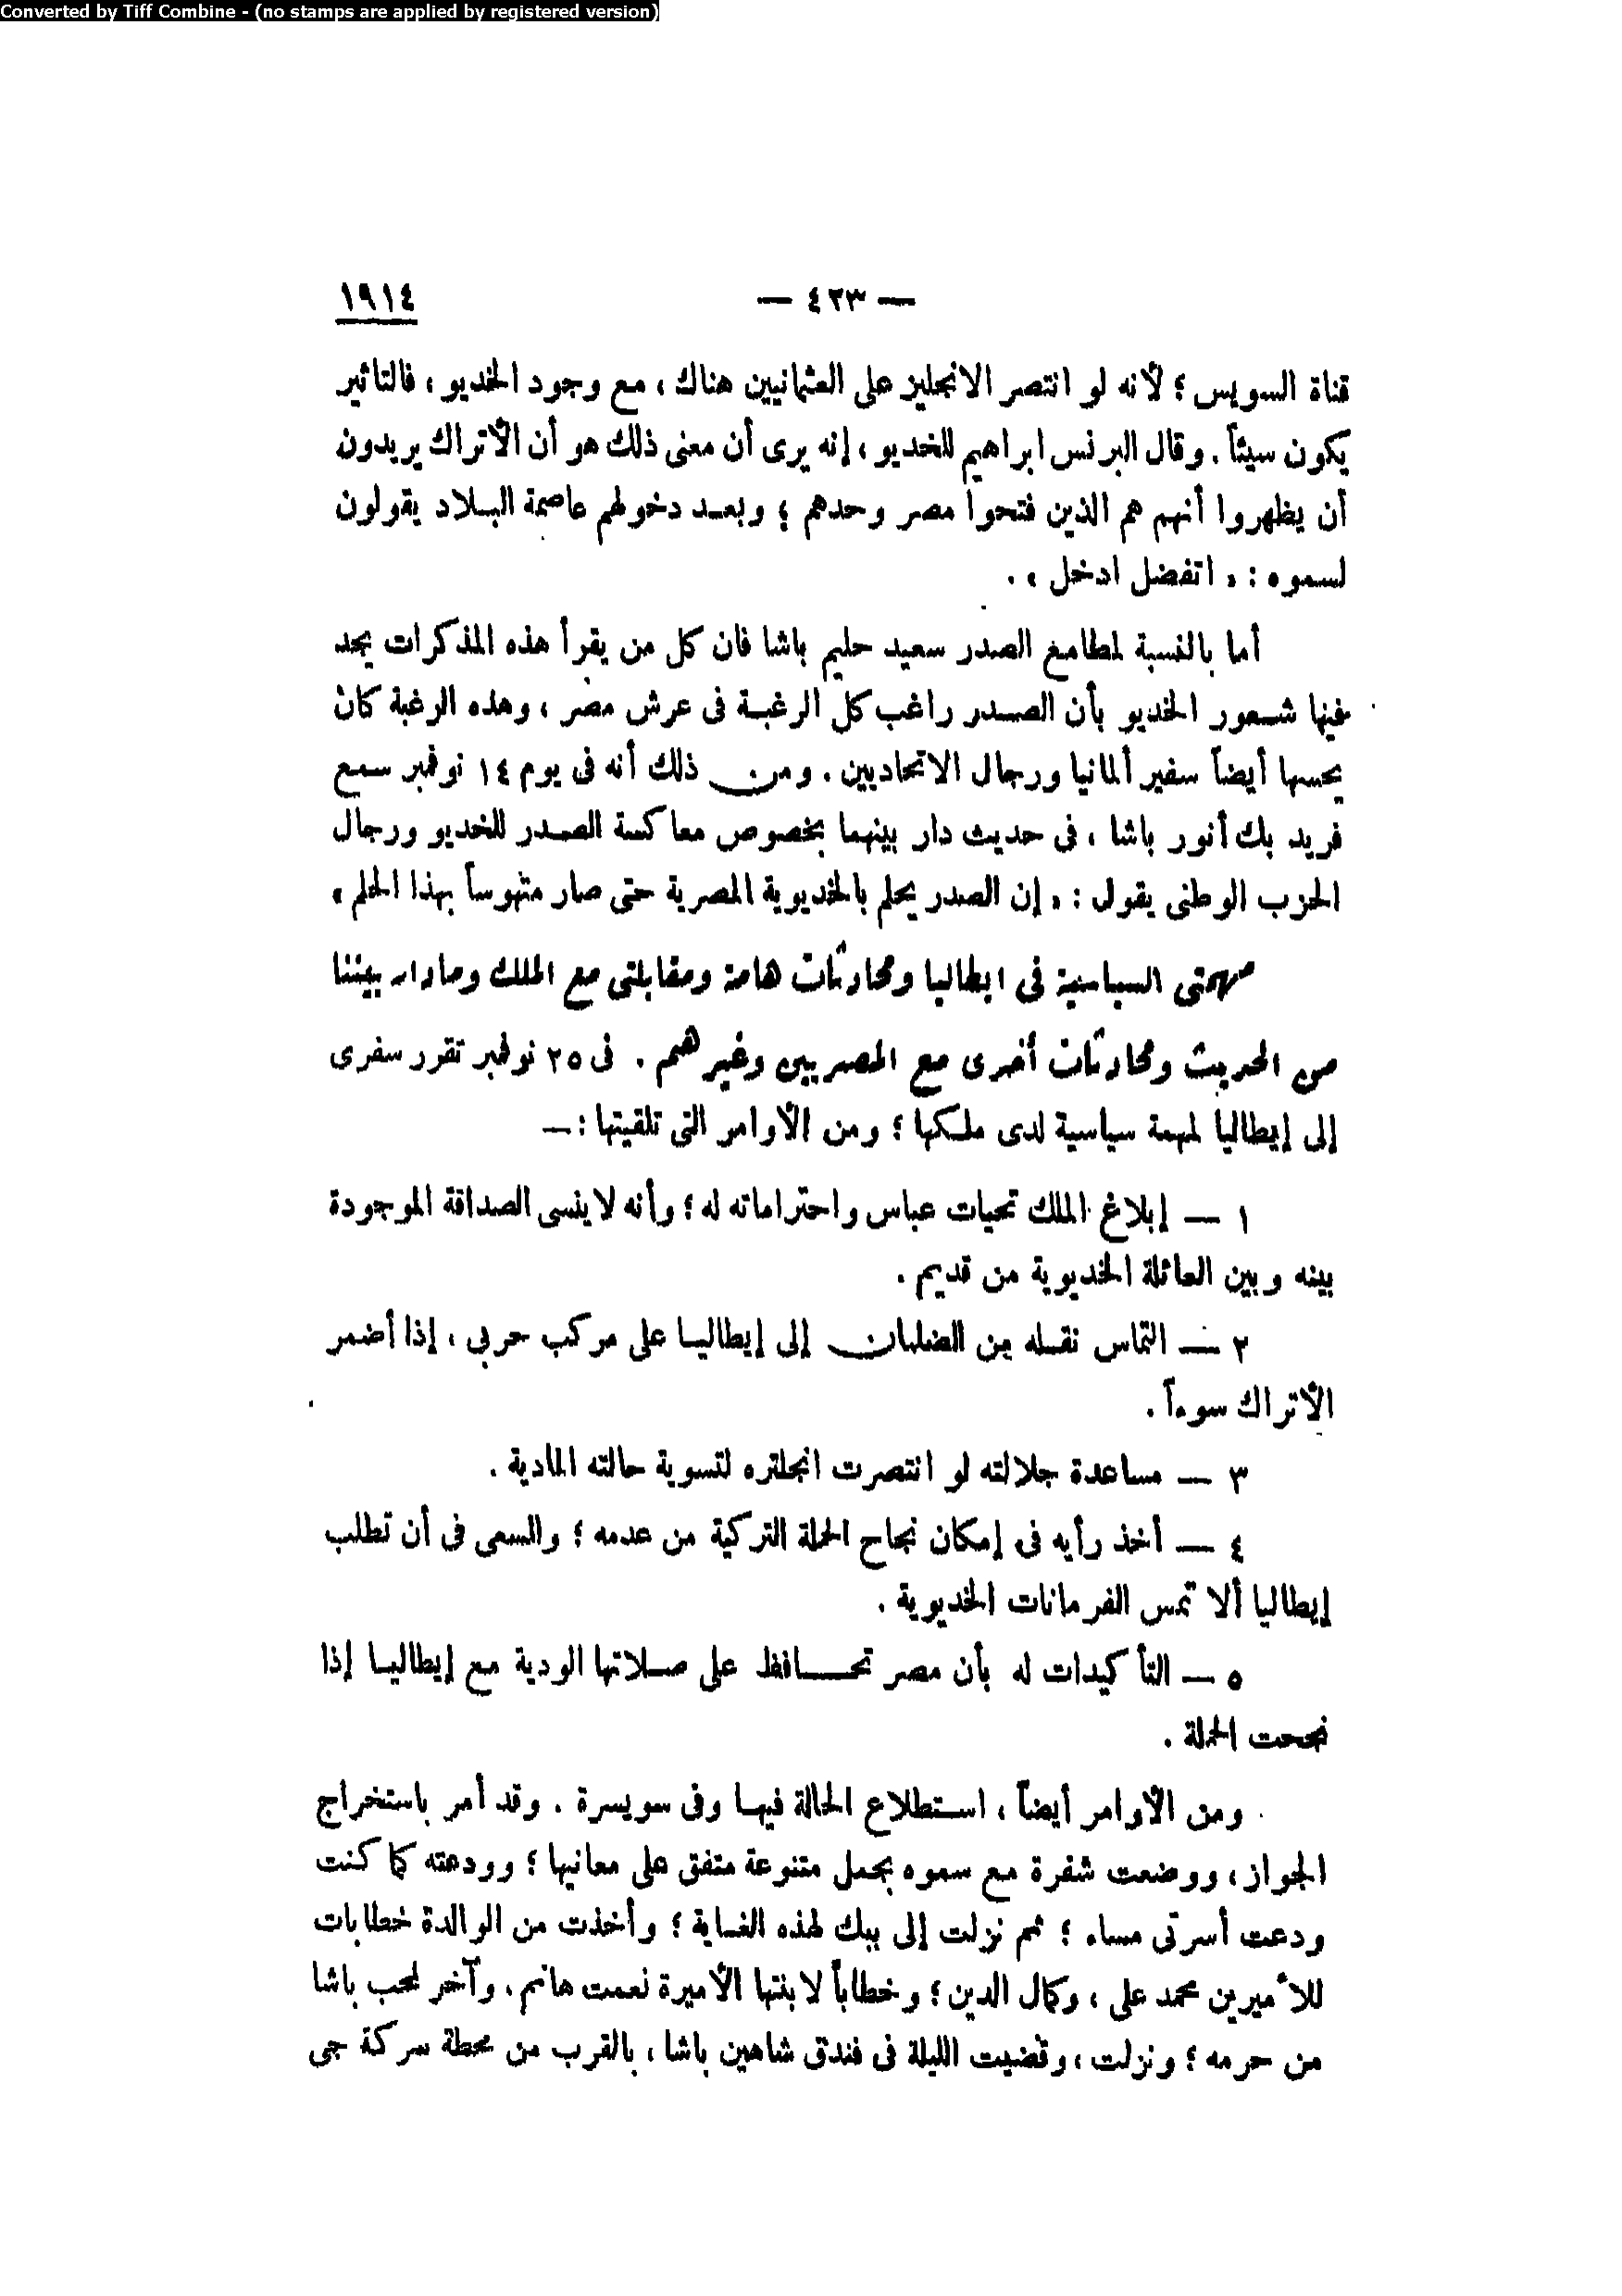 Converted by Tiff Combine - (no stamps are applied by registered version)
— ٤٢٣ —
١٩١٤
قناة السويس ؛ لأنه لو انتصر الانجليز على العثمانيين هناك ، مع وجود الخديو ، فالتاثير
يكون سيئاً . وقال البرنس ابراهيم للخديو ، إنه يرى أن معنى ذلك هو أن الأتراك يريدون
أن يظهروا أنهم هم الذين فتحوا مصر وحدهم ؛ وبعد دخولهم عاصمة البلاد يقولون
لسموه : « اتفضل ادخل » .
أما بالنسبة لمطامع الصدر سعيد حليم باشا فان كل من يقرأ هذه المذكرات يجد
فيها شعور الخديو بأن الصدر راغب كل الرغبة فى عرش مصر ، وهذه الرغبة كان
يحسها أيضاً سفير ألمانيا ورجال الاتحاديين . ومن ذلك أنه فى يوم ١٤ نوفمبر سمع
فريد بك أنور باشا ، فى حديث دار بينهما بخصوص معاكسة الصدر للخديو ورجال
الحزب الوطنى يقول : « إن الصدر يحلم بالخديوية المصرية حتى صار متهوساً بهذا الحلم »
مهمتى السياسية فى ايطاليا ومحادثات هامة ومقابلتى مع الملك وما دار بيننا
من الحديث ومحادثات أخرى مع المصريين وغيرهم . فى ٢٥ نوفمبر تقرر سفرى
إلى إيطاليا لمهمة سياسية لدى ملكها ؛ ومن الأوامر التى تلقيتها : —
١ — إبلاغ الملك تحيات عباس واحتراماته له ؛ وأنه لا ينسى الصداقة الموجودة
بينه وبين العائلة الخديوية من قديم .
٢ — التماس نقله من الضلمان إلى إيطاليا على مركب حربى ، إذا أضمر
الأتراك سوءاً .
٣ — مساعدة جلالته لو انتصرت انجلتره لتسوية حالته المادية .
٤ — أخذ رأيه فى إمكان نجاح الحملة التركية من عدمه ؛ والسعى فى أن تطلب
إيطاليا ألا تمس الفرمانات الخديوية .
٥ — التأكيدات له بأن مصر تحافظ على صلاتها الودية مع إيطاليا إذا
نجحت الحملة .
ومن الأوامر أيضاً ، استطلاع الحالة فيها وفى سويسرة . وقد أمر باستخراج
الجواز ، ووضعت شفرة مع سموه بجمل متنوعة متفق على معانيها ؛ وودعته كما كنت
ودعت أسرتى مساء ؛ ثم نزلت إلى ببك لهذه الغاية ؛ وأخذت من الوالدة خطابات
للأميرين محمد على ، وكمال الدين ؛ وخطاباً لابنتها الأميرة نعمت هانم . وآخر لمحب باشا
من حرمه ؛ ونزلت ، وقضيت الليلة فى فندق شاهين باشا ، بالقرب من محطة سركة جى